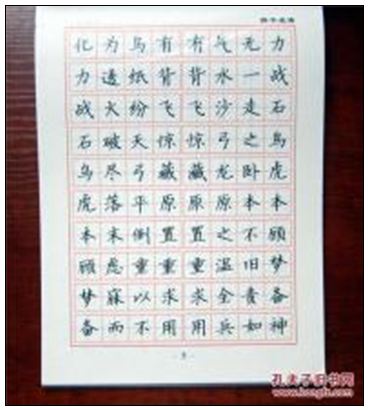 化为乌有有气无力
力透纸背背水一战
战火纷飞飞沙走石
石破天惊惊弓之鸟
鸟尽弓藏藏龙卧虎
虎落平原原原本本
本末倒置置之不顾
顾虑重重重温旧梦
梦寐以求求全责备
备而不用用兵如神
孔夫子旧书网